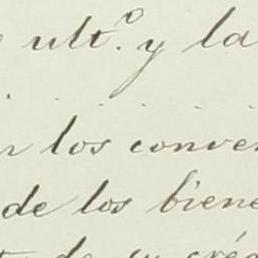 ult.º y la
los conven
de los biene
de su créd